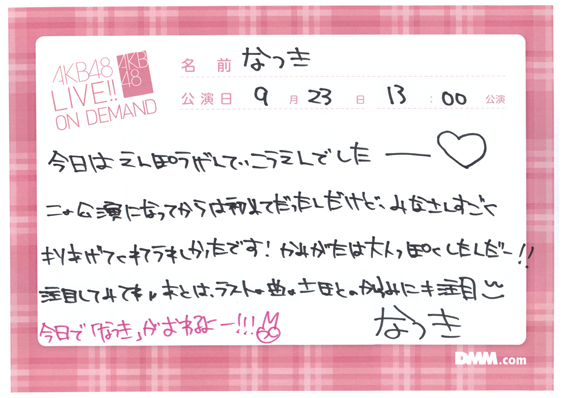 AKB48
LIVE!!
ON DEMAND
AKB
48
名前 なつき
公演日 9月23日 13:00公演
今日はえんぽうがしてい、こうえんでした ー ♡
この公演になってからは初めてだったんだけど、みなさんすごく
もりあげてくれてうれしかったです! かみがたは大人っぽくしたんだー!!
注目してみてね♪ あとは、ラストの曲の まゆとのからみにも注目
今日で「なつき」がおわるよー!!!
なつき
DMM.com